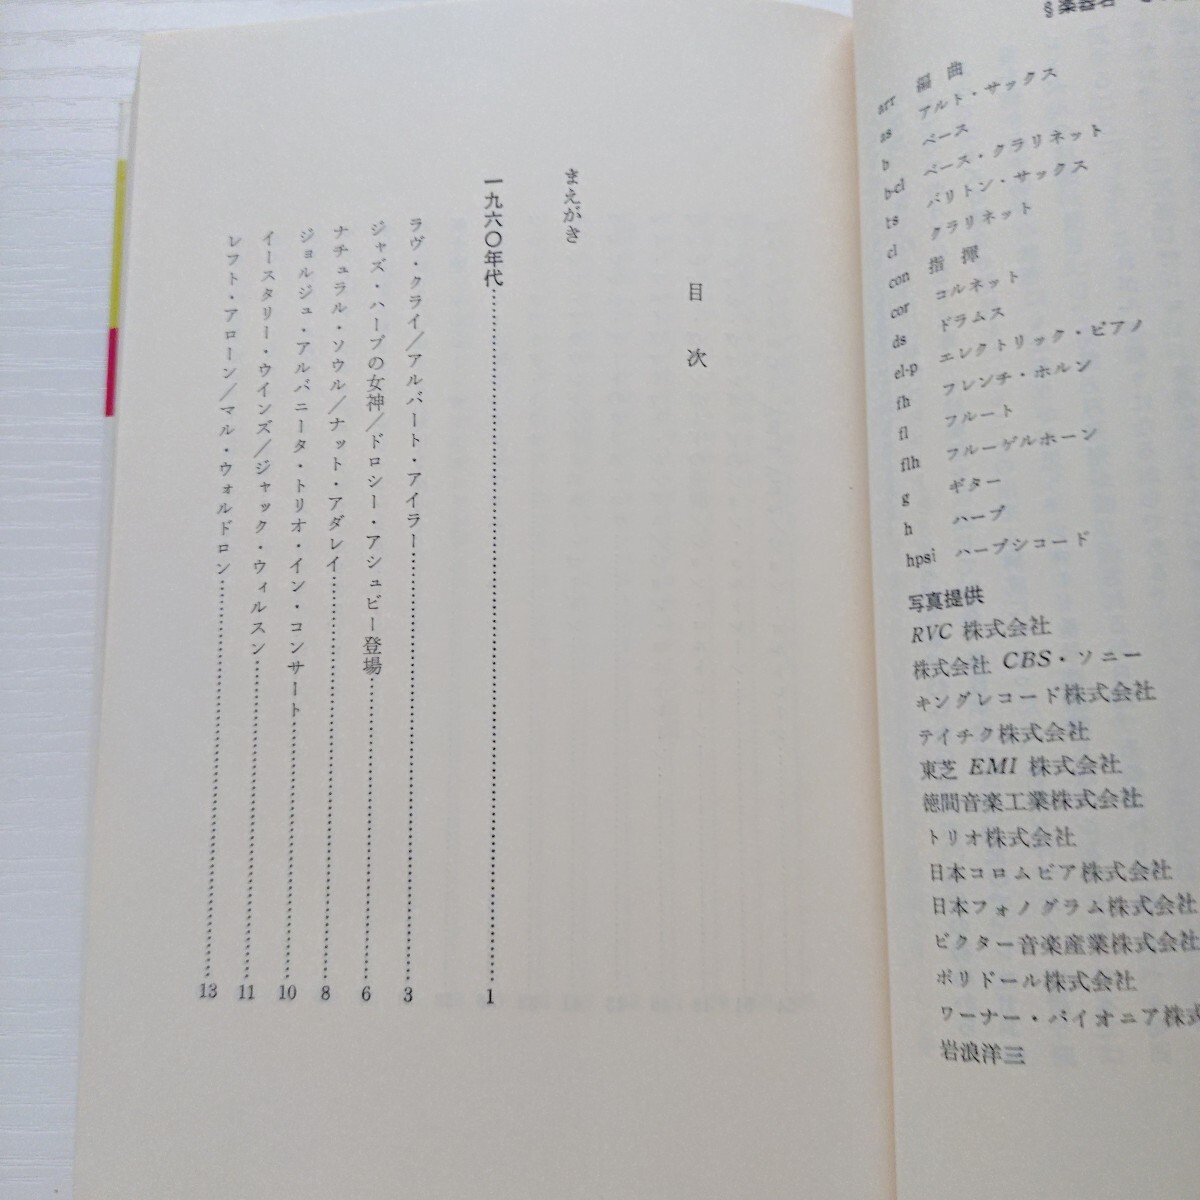 §楽器名
arr 編曲
as アルト・サックス
b ベース
b-cl ベース・クラリネット
ts バリトン・サックス
cl クラリネット
con 指揮
cor コルネット
ds ドラムス
el-p エレクトリック・ピアノ
fh フレンチ・ホルン
fl フルート
flh フルーゲルホーン
g ギター
h ハープ
hpsi ハープシコード
写真提供
RVC 株式会社
株式会社 CBS・ソニー
キングレコード株式会社
テイチク株式会社
東芝 EMI 株式会社
徳間音楽工業株式会社
トリオ株式会社
日本コロムビア株式会社
日本フォノグラム株式会社
ビクター音楽産業株式会社
ポリドール株式会社
ワーナー・パイオニア株式
岩浪洋三
目次
まえがき
一九六〇年代……1
ラヴ・クライ/アルバート・アイラー……3
ジャズ・ハープの女神/ドロシー・アシュビー登場……6
ナチュラル・ソウル/ナット・アダレイ……8
ジョルジュ・アルバニータ・トリオ・イン・コンサート……10
イースタリー・ウインズ/ジャック・ウィルスン……11
レフト・アローン/マル・ウォルドロン……13